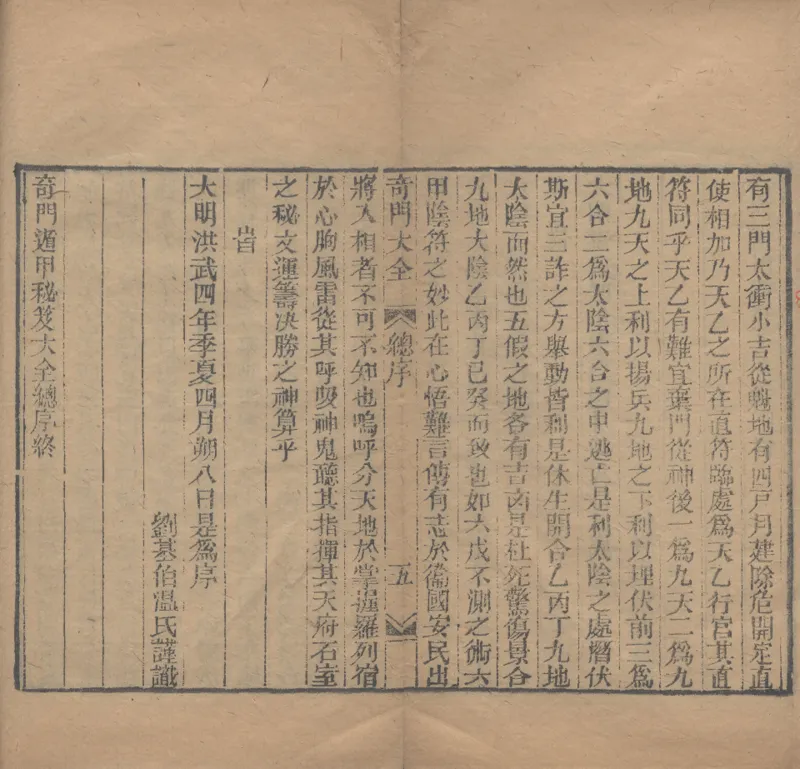 有三門太衝小吉從魁地有四戸月建除危開定直
使相加乃天乙之所在直符臨處爲天乙行宫其直
符同乎天乙有難宜棄門從神後一爲九天二爲九
地九天之上利以揚兵九地之下利以埋伏前三爲
六合二爲太陰六合之中逃亡是利太陰之處潛伏
斯宜三詐之方舉動皆利是休生開合乙丙丁九地
太陰而然也五假之地各有吉凶是杜死驚傷景合
九地太陰乙丙丁已癸而致也如六戊不測之術六
甲陰符之妙此在心悟難言傳有志於衞國安民出
奇門大全 總序 五
將入相者不可不知也嗚呼分天地於掌握羅列宿
於心胸風雷從其呼吸神鬼聽其指揮其天府石室
之秘文運籌决勝之神算乎
旹
大明洪武四年季夏四月朔八日是爲序
劉基伯溫氏謹識
奇門遁甲秘笈大全總序終